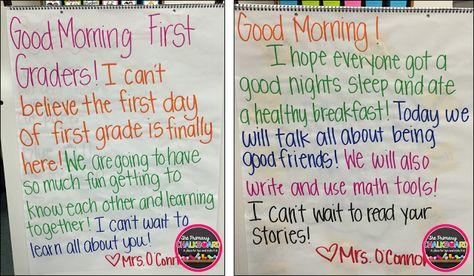 Good Morning First
Graders! I can't
believe the first day
of first grade is finally
here! We are going to have
so much fun getting to
know each other and learning
together! I can't wait to
learn all about you!
♡Mrs. O'Conn
The Primary
CHALKBOARD
Good Morning!
I hope everyone got a
good nights sleep and ate
a healthy breakfast! Today we
will talk all about being
good friends! We will also
write and use math tools!
I can't wait to read your
Stories!
♡Mrs. O'Conno
The Primary
CHALKBOARD